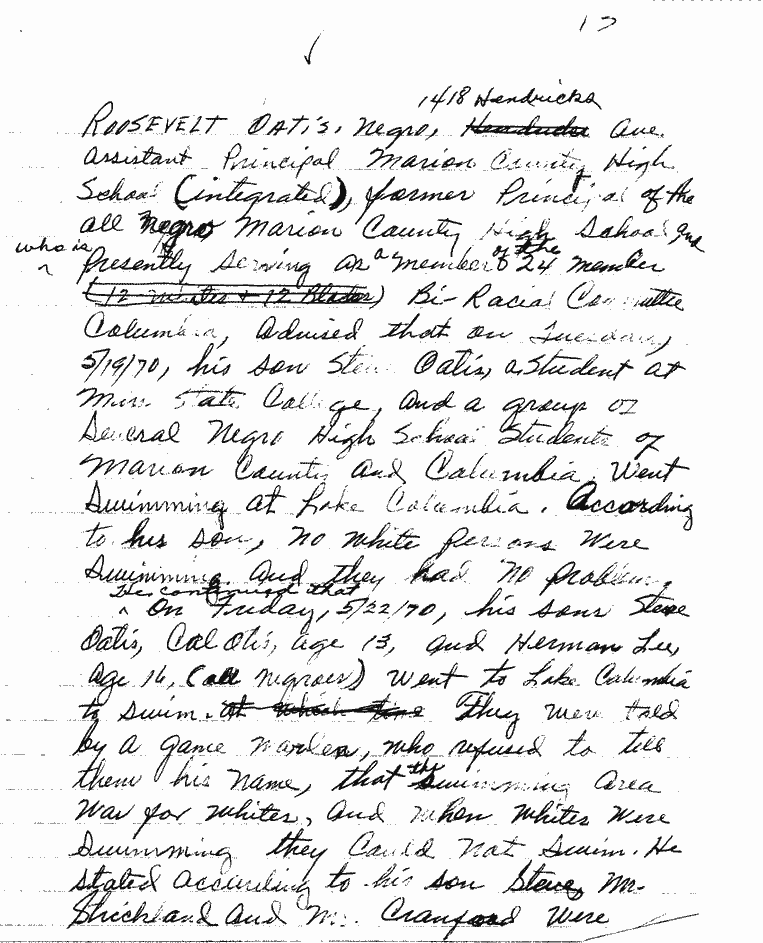 17
1418 Hendricks
ROOSEVELT OATIS, Negro, Ave.
Assistant Principal Marion County High
School (integrated), former Principal of the
all Negro Marion County High School and
who is
presently serving as a member of the 24 member
(12 whites + 12 Blacks) Bi-Racial Committee
Columbia, advised that on Tuesday,
5/19/70, his son Steve Oatis, a student at
Miss. State College, and a group of
several Negro High School Students of
Marion County and Columbia went
swimming at Lake Columbia. According
to his son, no white persons were
swimming and they had no problem.
He continued that
On Friday, 5/22/70, his sons Steve
Oatis, Cal Otis, age 13, and Herman Lee,
age 16, (all negroes) went to Lake Columbia
to swim. At which time They were told
by a game warden, who refused to tell
them his name, that the swimming area
was for whites, and when whites were
swimming they could not swim. He
stated according to his son Steve, Mr.
Strickland and Mr. Crawford were